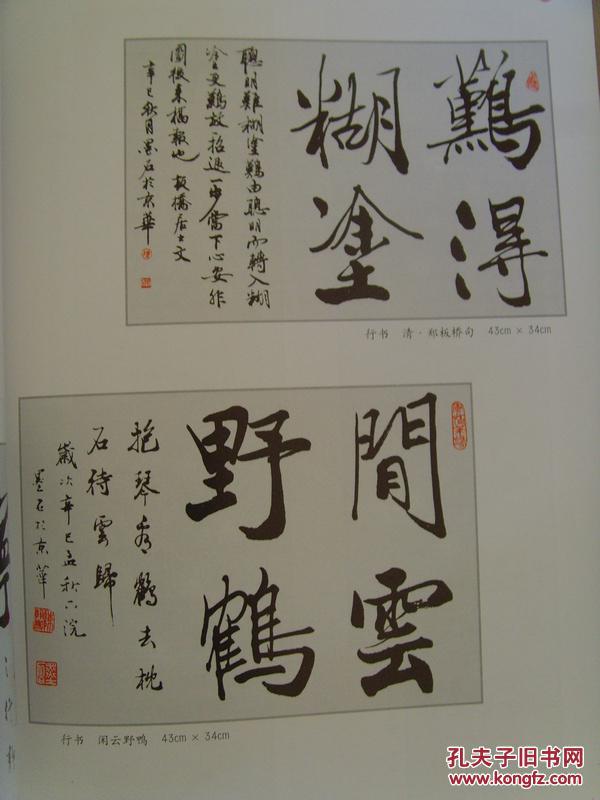 難得
糊塗
聰明難糊塗難由聰明而轉入糊
塗更難放招退一步當下心安非
圖後來福報也 板橋居士文
辛巳秋月墨石於京華
行书 清·郑板桥句 43cm × 34cm
閒雲
野鶴
抱琴看鶴去枕
石待雲歸
歲次辛巳孟秋下浣
墨石於京華
行书 闲云野鸭 43cm × 34cm
孔夫子旧书网
www.kongfz.com